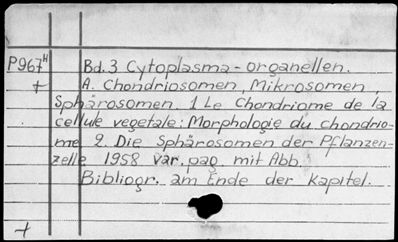 P967H Bd. 3 Cytoplasma-organellen.
+ A. Chondriosomen, Mikrosomen,
Sphärosomen. 1 Le Chondriome de la
cellule vegetale: Morphologie du chondrio-
me 2. Die Sphärosomen der Pflanzen-
zelle 1958 Var. pag mit Abb.
Bibliogr. am Ende der Kapitel.
+